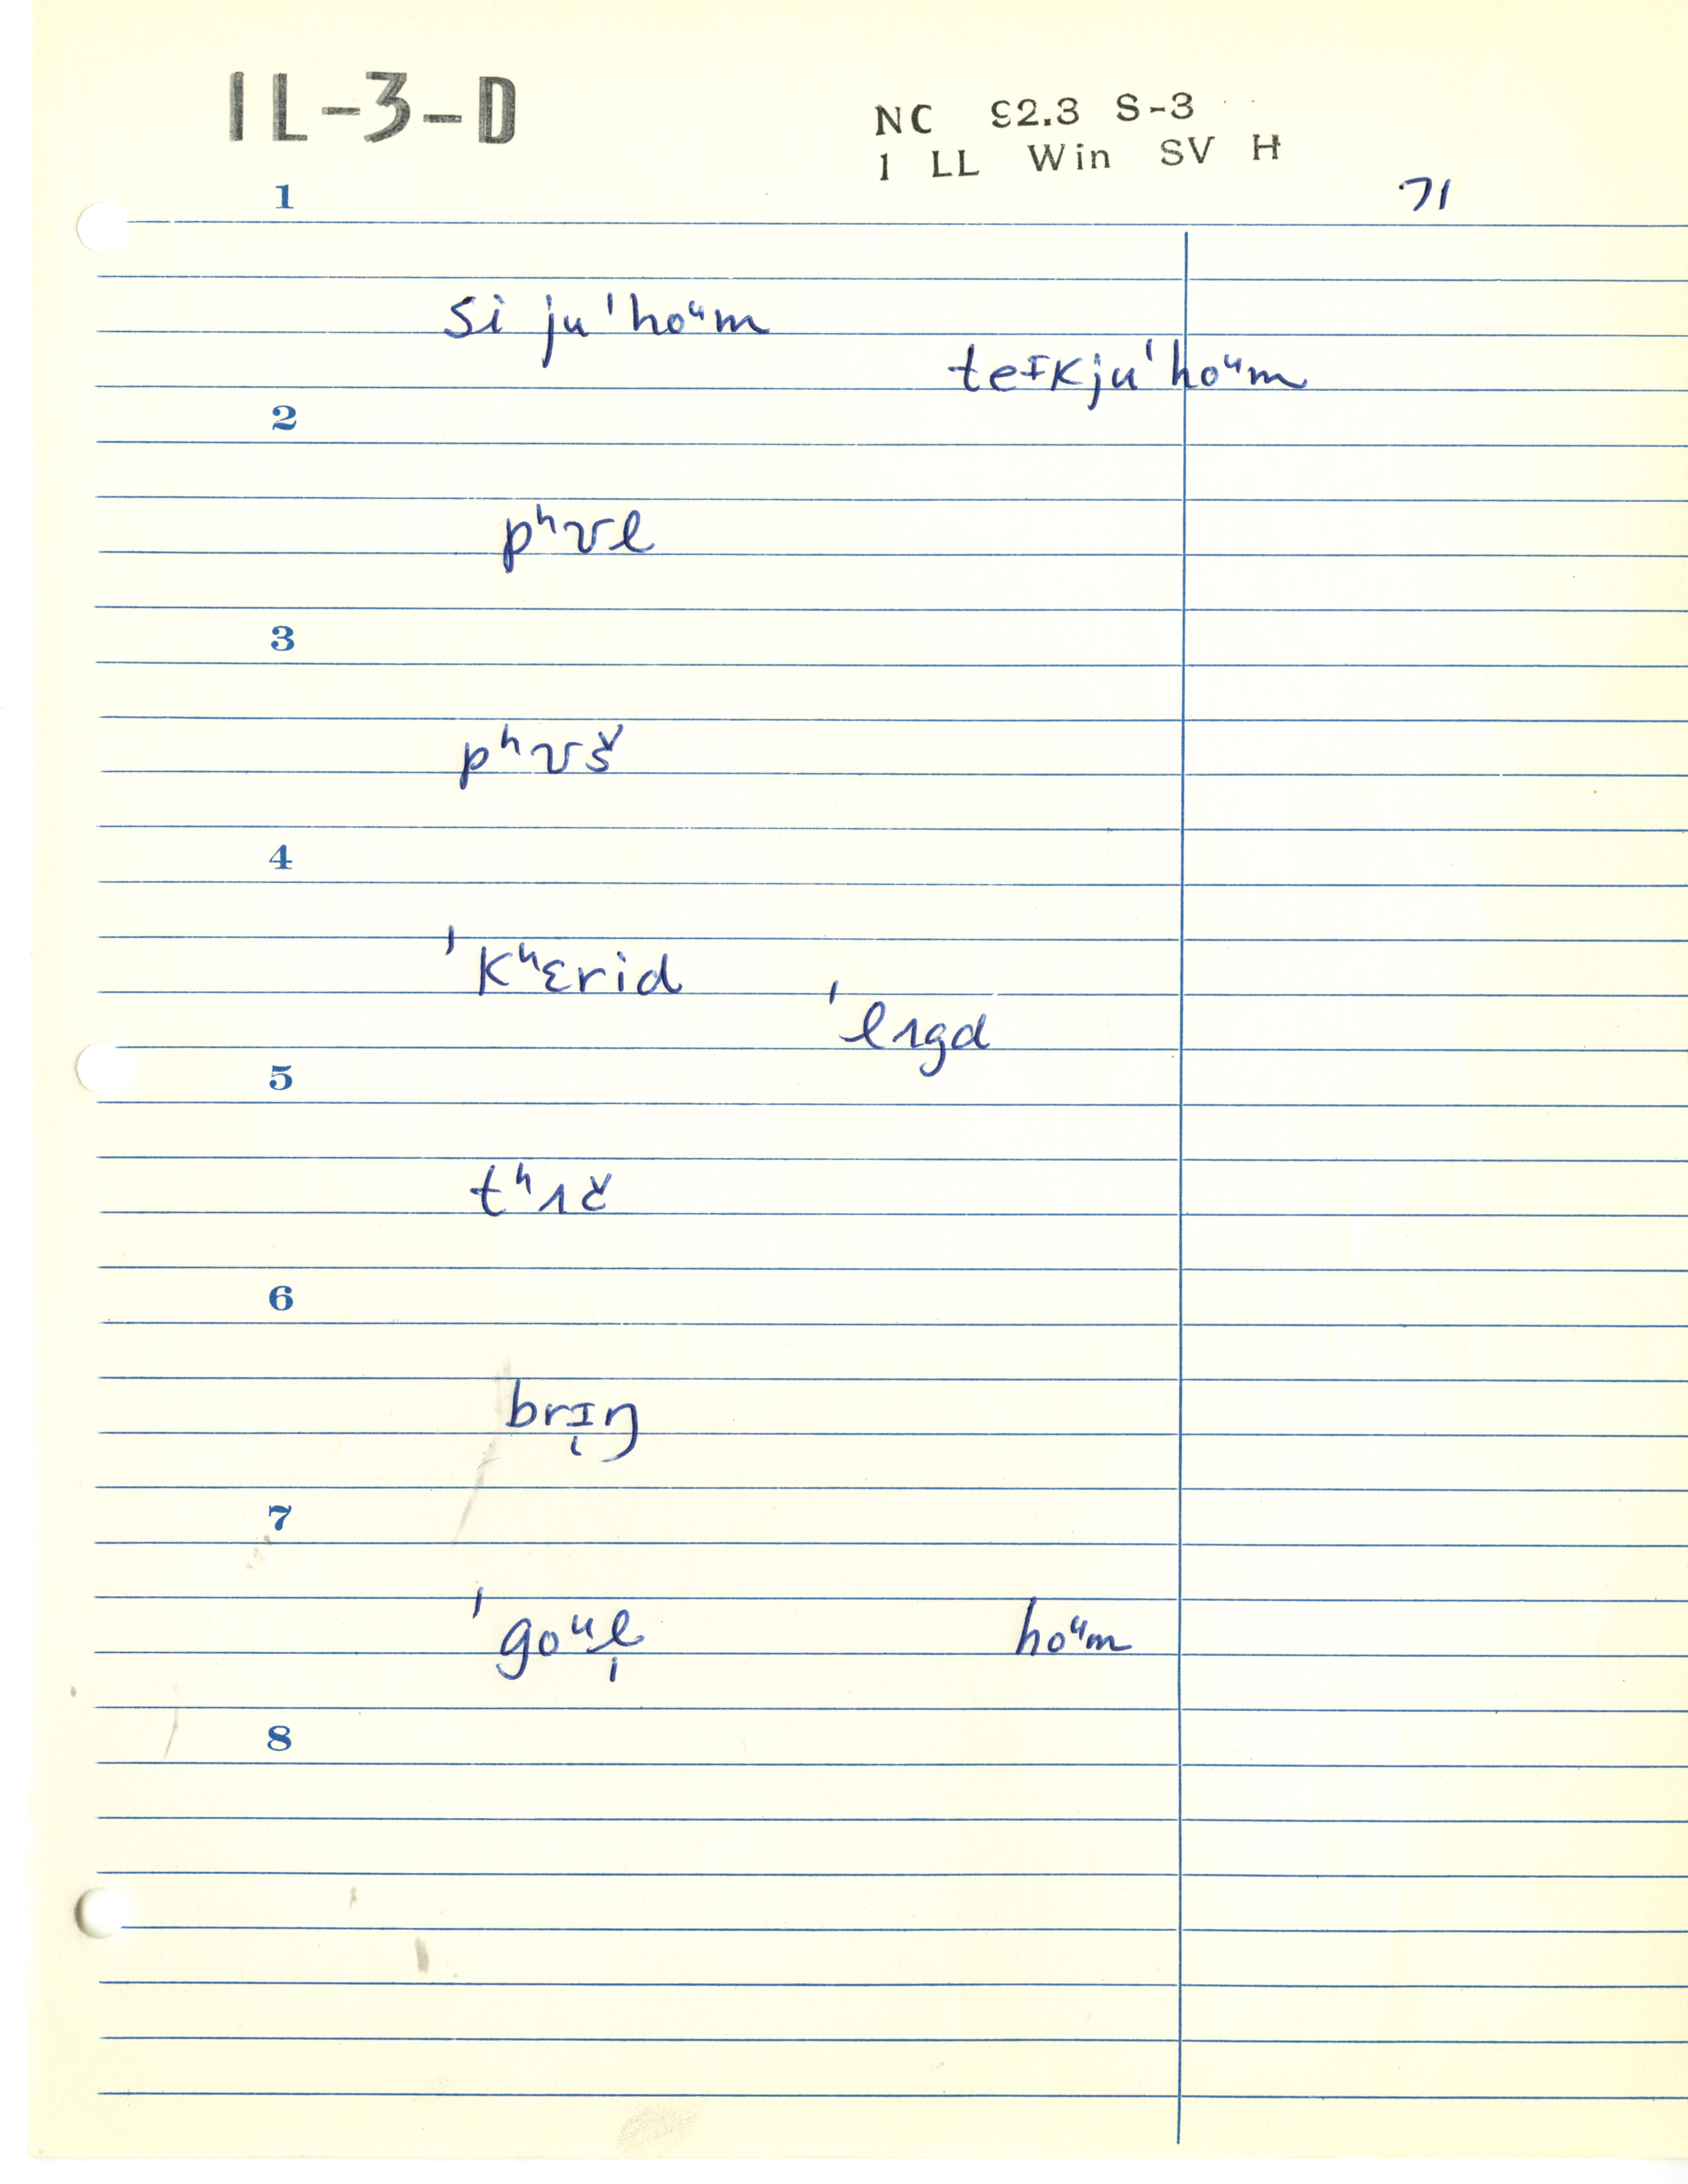 1L-3-D
NC 92.3 S-3
1 LL Win SV H
71
1
si juˈhoᵘm
teɪkjuˈhoᵘm
2
pʰʊl
3
pʰʊš
4
ˈkʰɛrid
ˈlɪgd
5
tʰɪč
6
brɪ̜ŋ
7
ˈgoᵘl̩
hoᵘm
8